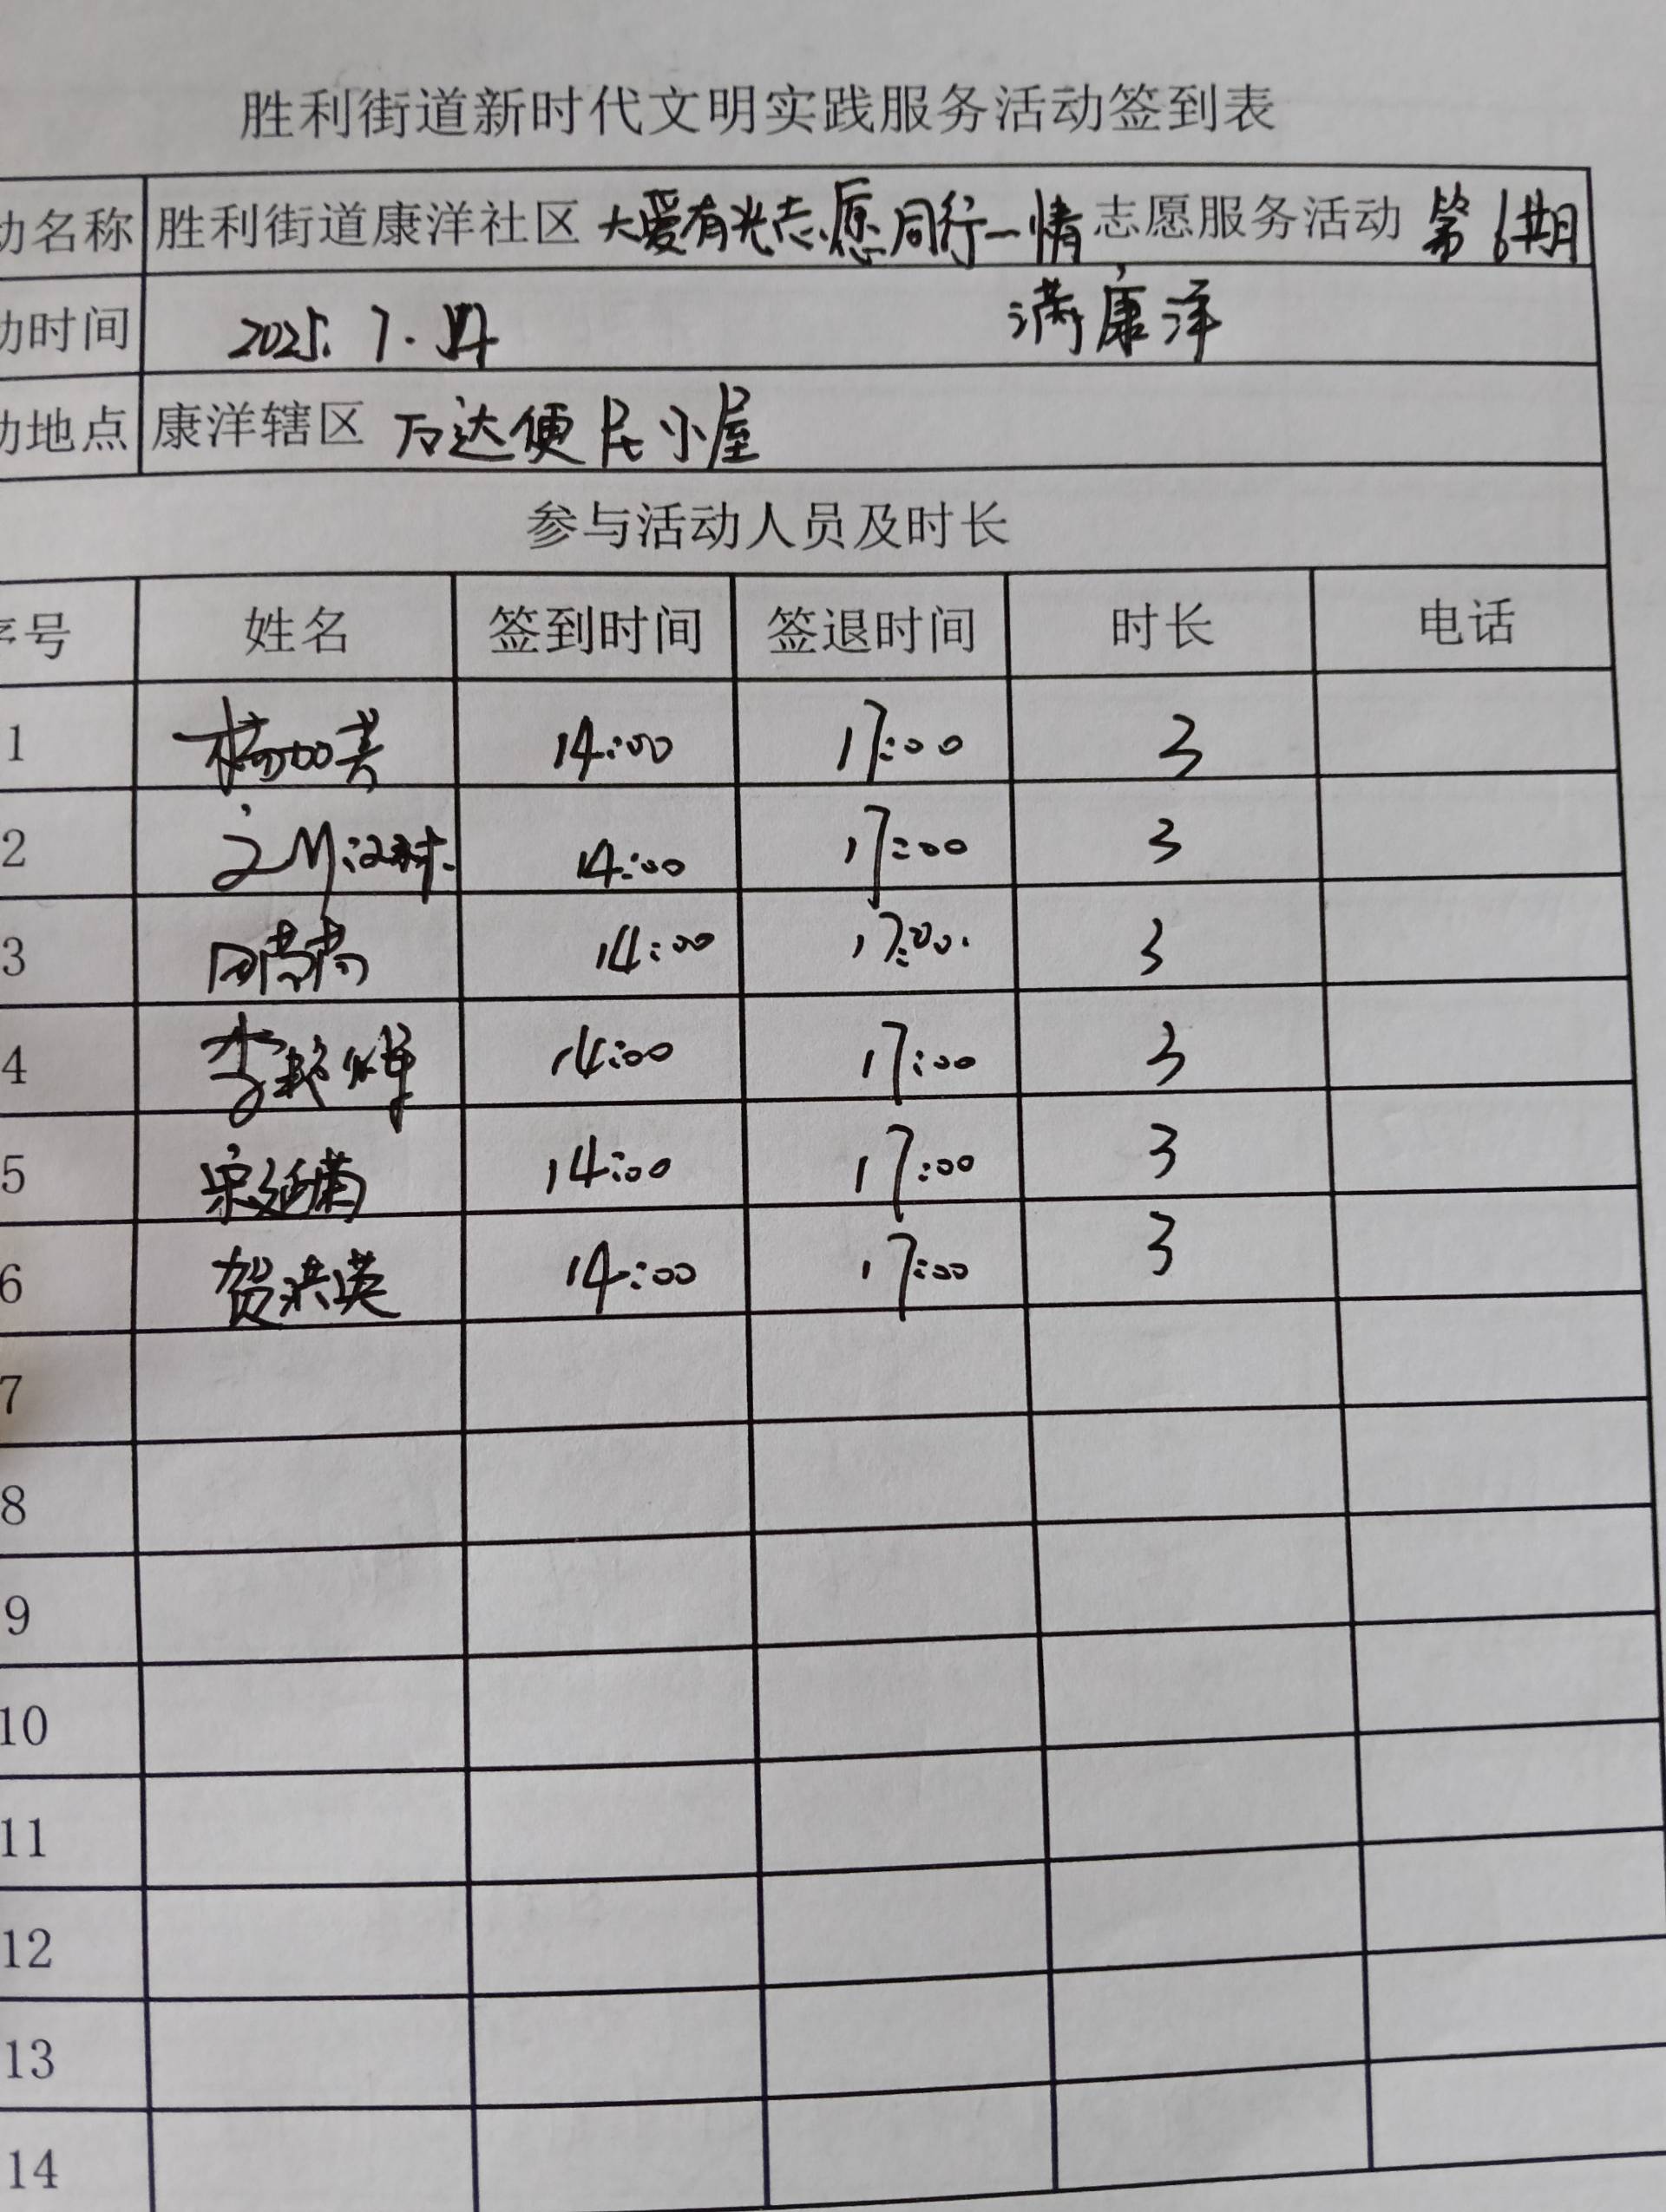 胜利街道新时代文明实践服务活动签到表
动名称 胜利街道康洋社区 大爱有光志愿同行一情 志愿服务活动 第6期
满康洋
动时间 2025.7.
动地点 康洋辖区 万达便民小屋
参与活动人员及时长
序号 姓名 签到时间 签退时间 时长 电话
1 杨加美 14:00 17:00 3
2 14:00 17:00 3
3 14:00 17:00 3
4 李艳辉 14:00 17:00 3
5 宋延菊 14:00 17:00 3
6 贺洪英 14:00 17:00 3
7
8
9
10
11
12
13
14